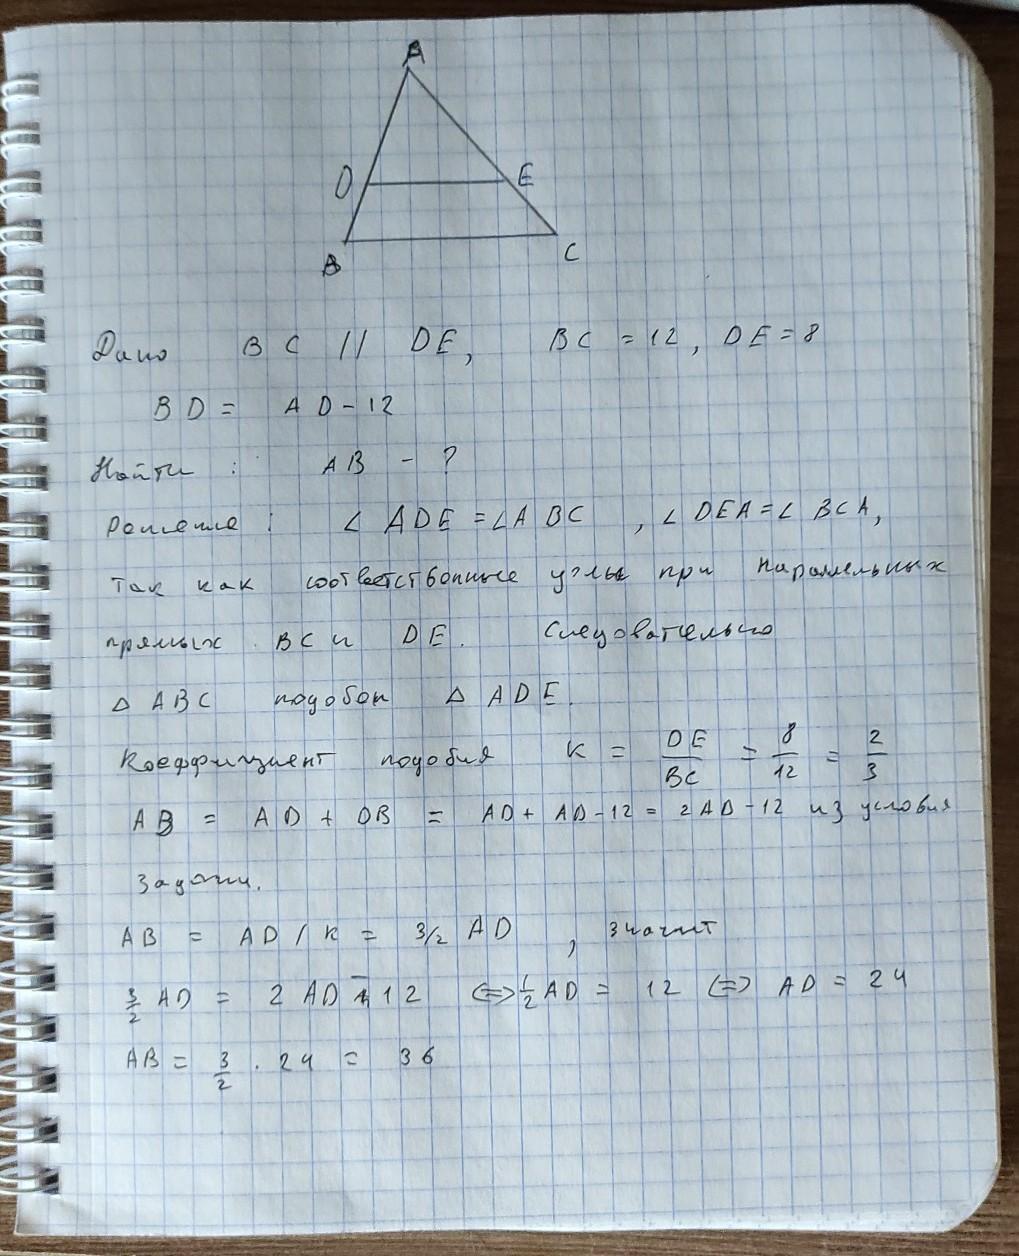 A
D
E
B
C
Дано BC || DE, BC = 12, DE = 8
BD = AD - 12
Найти : AB - ?
Решение : ∠ ADE = ∠ABC , ∠ DEA = ∠ BCA,
так как соответственные углы при параллельных
прямых BC и DE. Следовательно
Δ ABC подобен Δ ADE.
Коэффициент подобия K = DE/BC = 8/12 = 2/3
AB = AD + DB = AD + AD - 12 = 2AD - 12 из условия
задачи.
AB = AD / K = 3/2 AD , значит
3/2 AD = 2 AD - 12 <=> 1/2 AD = 12 <=> AD = 24
AB = 3/2 · 24 = 36